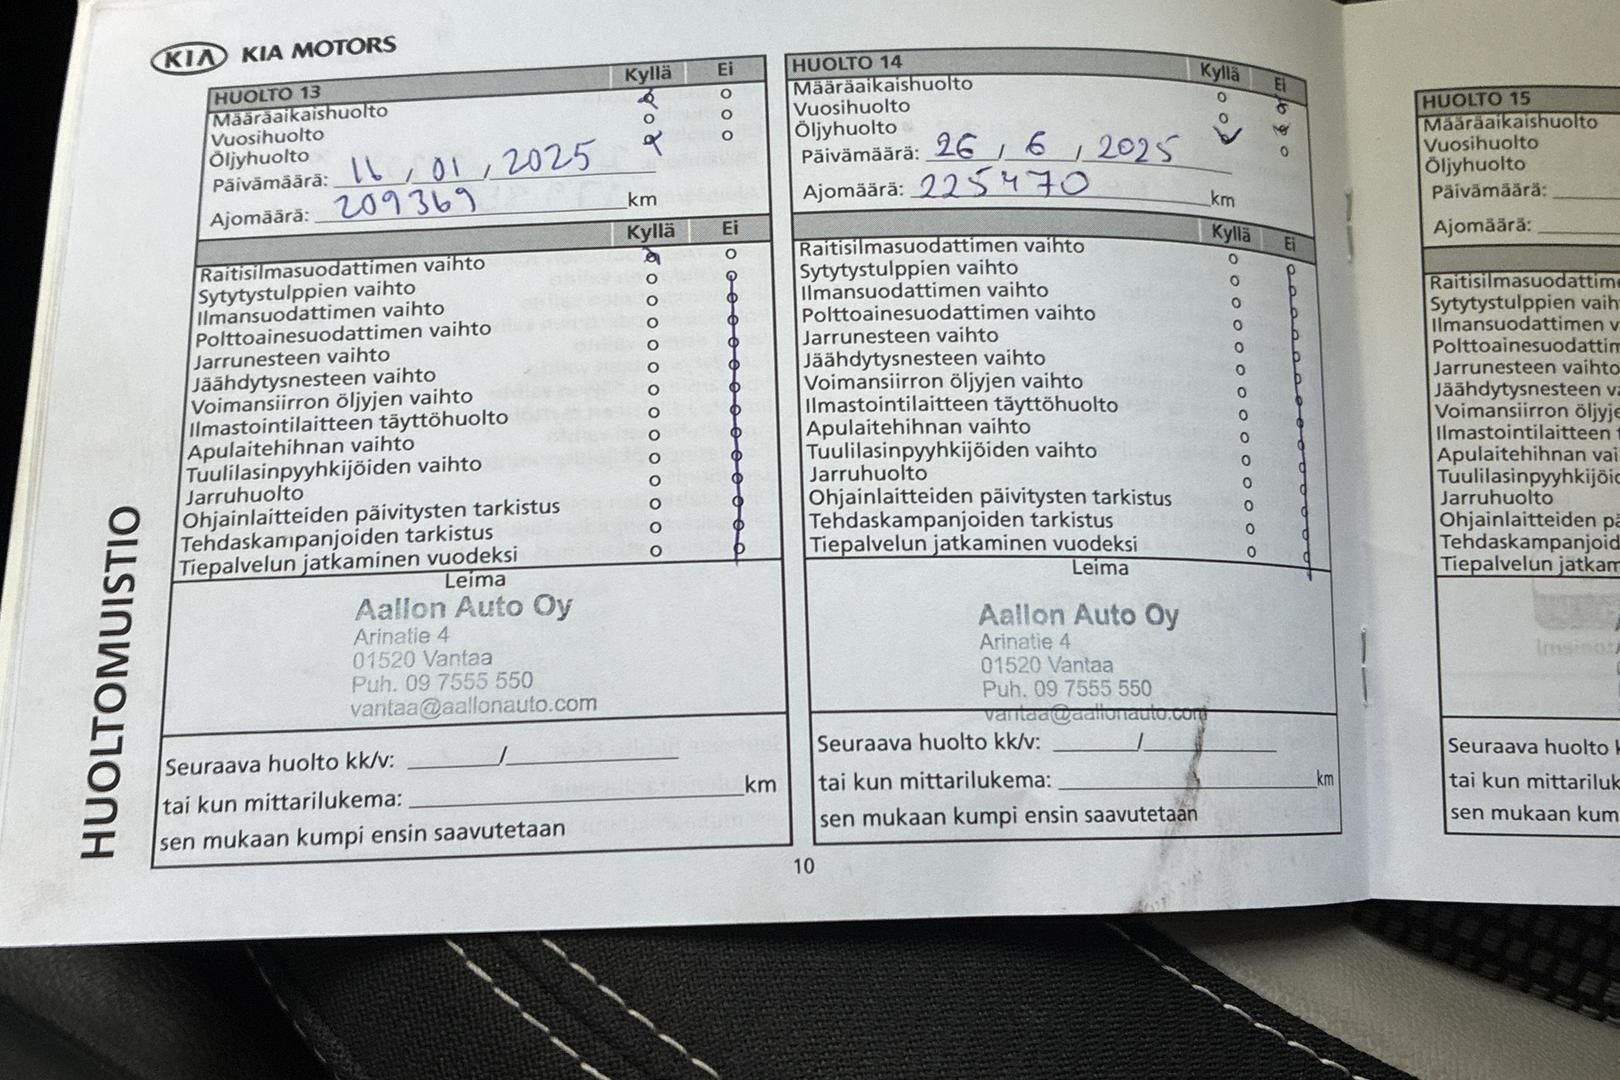 KIA KIA MOTORS
HUOLTOMUISTIO
HUOLTO 13 Kyllä Ei
Määräaikaishuolto
Vuosihuolto
Öljyhuolto
Päivämäärä: 16, 01, 2025
Ajomäärä: 209369 km
Kyllä Ei
Raitisilmasuodattimen vaihto
Sytytystulppien vaihto
Ilmansuodattimen vaihto
Polttoainesuodattimen vaihto
Jarrunesteen vaihto
Jäähdytysnesteen vaihto
Voimansiirron öljyjen vaihto
Ilmastointilaitteen täyttöhuolto
Apulaitehihnan vaihto
Tuulilasinpyyhkijöiden vaihto
Jarruhuolto
Ohjainlaitteiden päivitysten tarkistus
Tehdaskampanjoiden tarkistus
Tiepalvelun jatkaminen vuodeksi
Leima
Aallon Auto Oy
Arinatie 4
01520 Vantaa
Puh. 09 7555 550
vantaa@aallonauto.com
Seuraava huolto kk/v: ______/______
tai kun mittarilukema: ______ km
sen mukaan kumpi ensin saavutetaan
HUOLTO 14 Kyllä Ei
Määräaikaishuolto
Vuosihuolto
Öljyhuolto
Päivämäärä: 26, 6, 2025
Ajomäärä: 225470 km
Kyllä Ei
Raitisilmasuodattimen vaihto
Sytytystulppien vaihto
Ilmansuodattimen vaihto
Polttoainesuodattimen vaihto
Jarrunesteen vaihto
Jäähdytysnesteen vaihto
Voimansiirron öljyjen vaihto
Ilmastointilaitteen täyttöhuolto
Apulaitehihnan vaihto
Tuulilasinpyyhkijöiden vaihto
Jarruhuolto
Ohjainlaitteiden päivitysten tarkistus
Tehdaskampanjoiden tarkistus
Tiepalvelun jatkaminen vuodeksi
Leima
Aallon Auto Oy
Arinatie 4
01520 Vantaa
Puh. 09 7555 550
vantaa@aallonauto.com
Seuraava huolto kk/v: ______/______
tai kun mittarilukema: ______ km
sen mukaan kumpi ensin saavutetaan
10
HUOLTO 15
Määräaikaishuolto
Vuosihuolto
Öljyhuolto
Päivämäärä:
Ajomäärä:
Raitisilmasuodattim
Sytytystulppien vaih
Ilmansuodattimen v
Polttoainesuodattim
Jarrunesteen vaihto
Jäähdytysnesteen va
Voimansiirron öljyje
Ilmastointilaitteen
Apulaitehihnan vai
Tuulilasinpyyhkijöid
Jarruhuolto
Ohjainlaitteiden pä
Tehdaskampanjoid
Tiepalvelun jatkam
Seuraava huolto k
tai kun mittariluk
sen mukaan kum